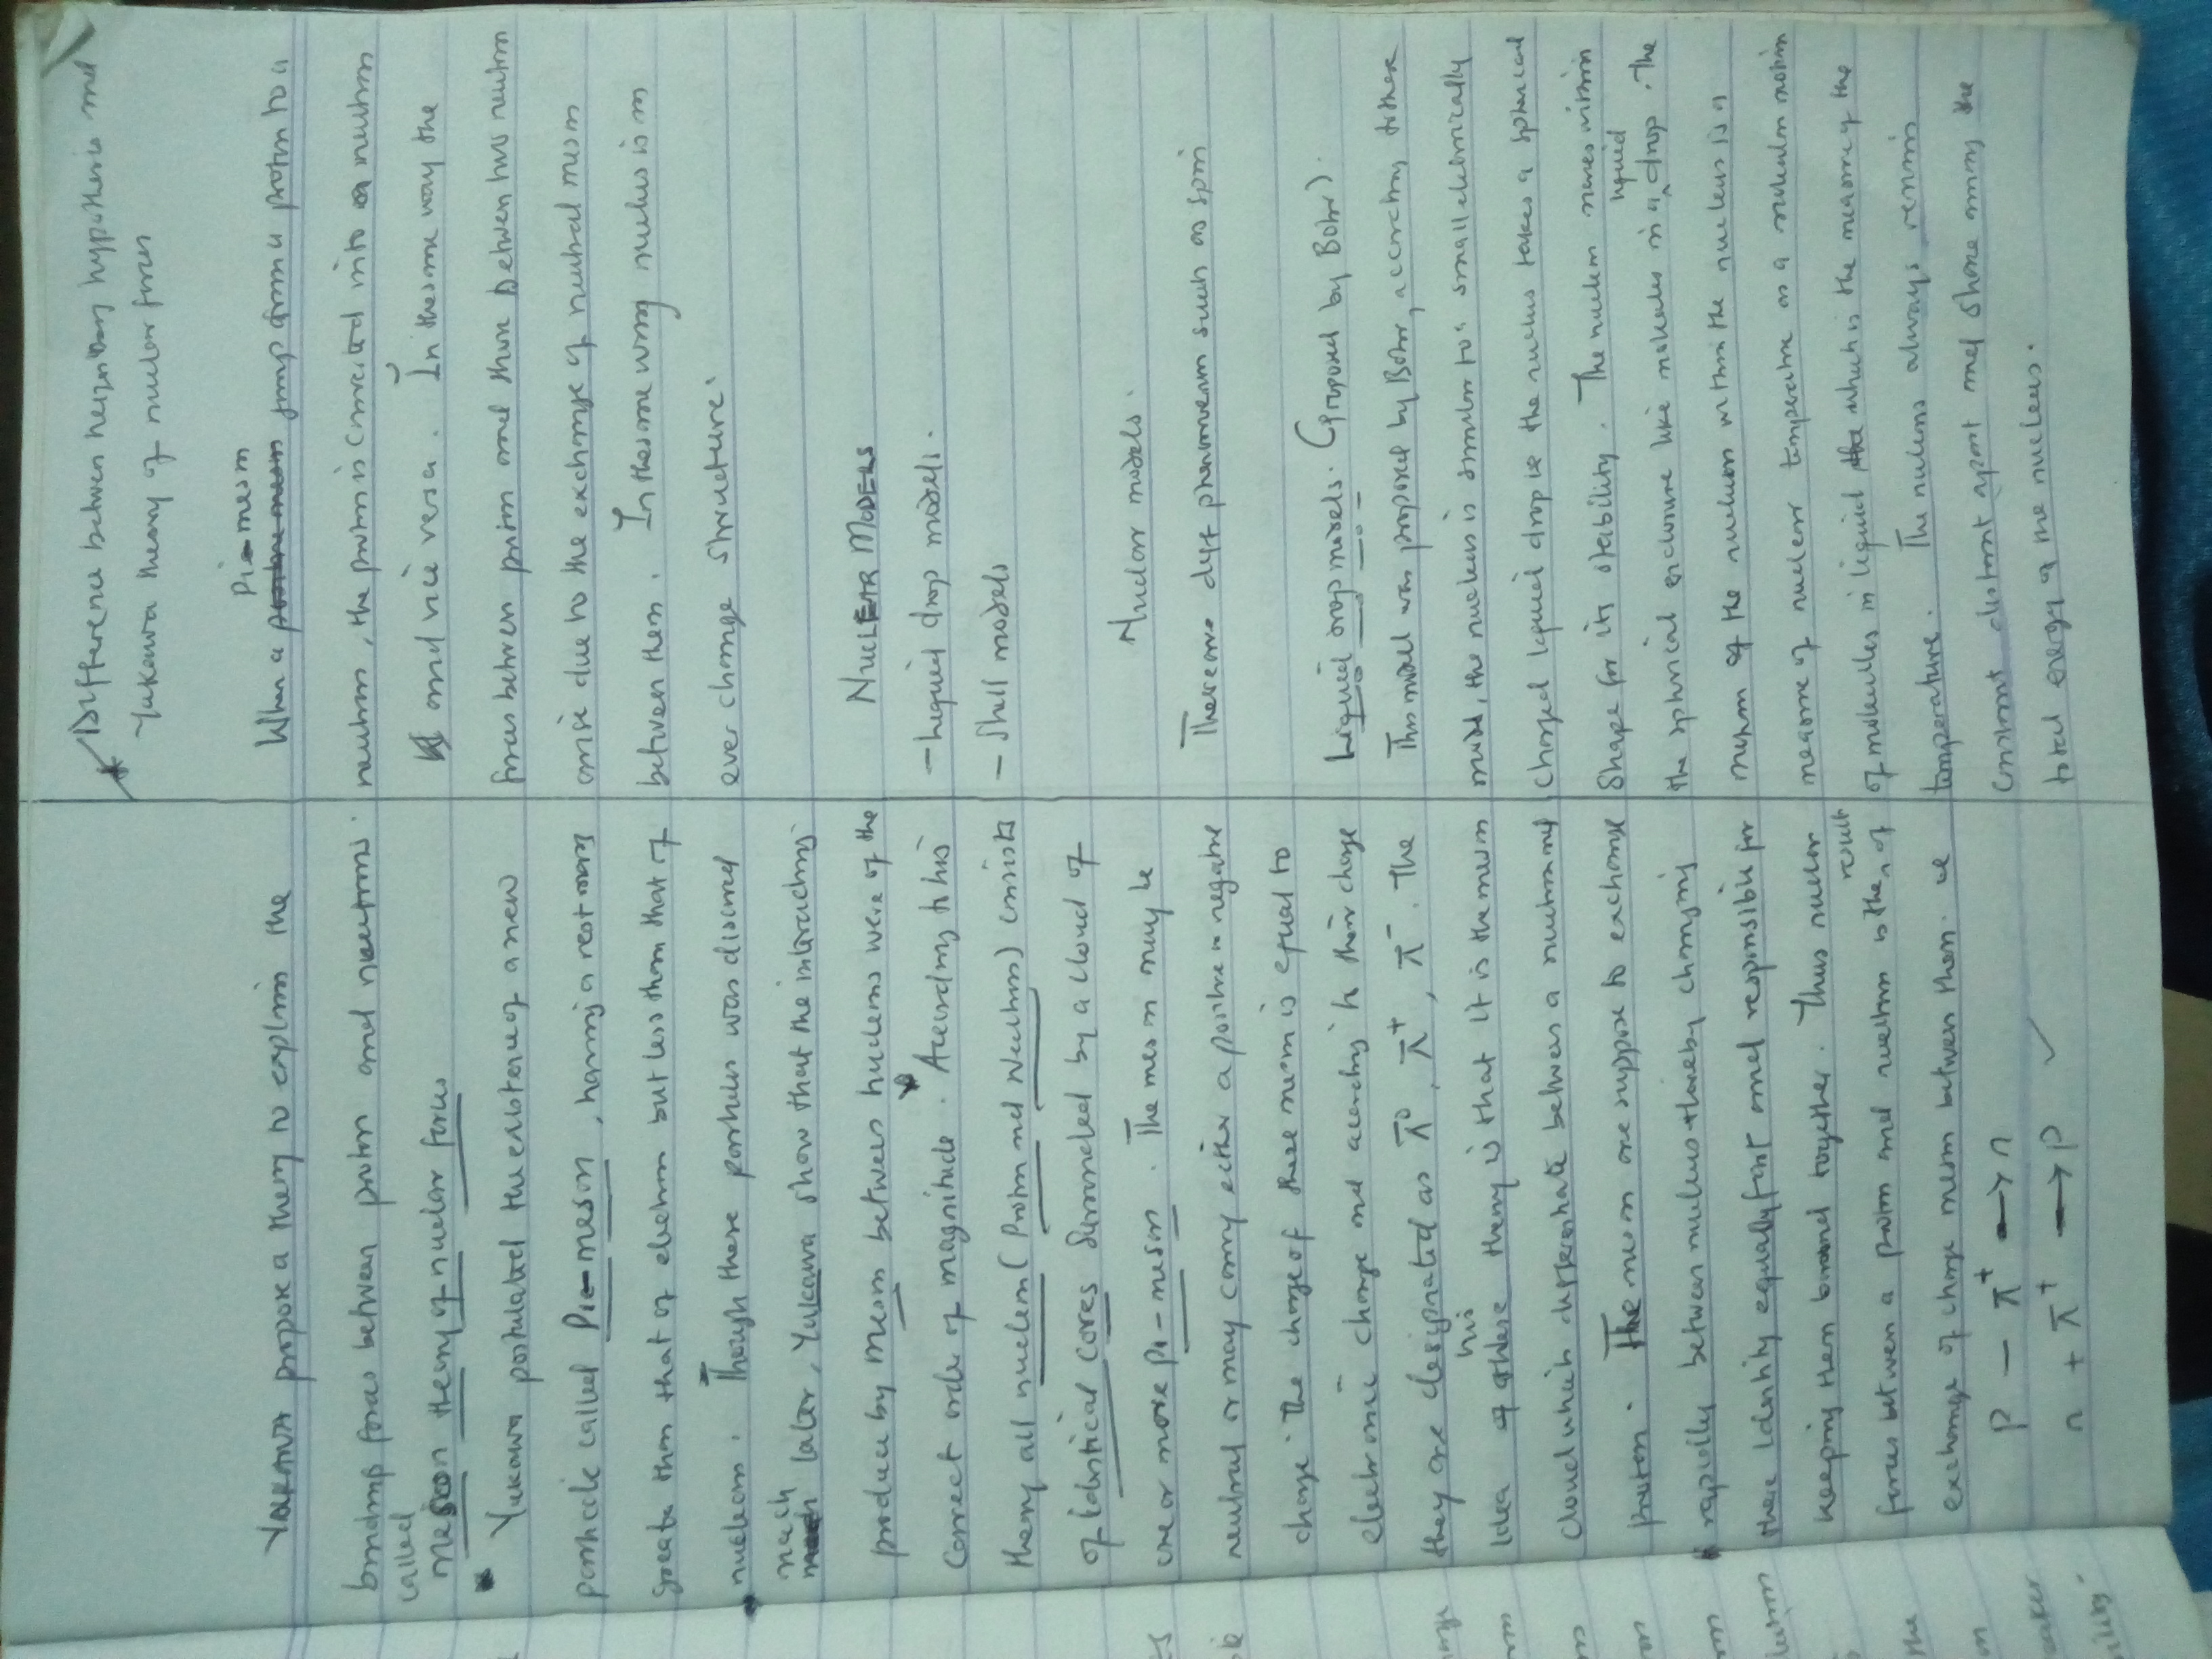 YUKAWA propose a theory to explain the
binding forces between proton and neutrons.
called
meson theory of nuclear forces
Yukawa postulated the existence of a new
particle called Pie-meson, having a rest mass
greater than that of electron but less than that of
nucleons. Though these particles was discovered
much
later, Yukawa show that the interacting
produce by meson between nucleons were of the
correct order of magnitude. According to his
theory all nucleon (Proton and Neutrons) consists
of identical cores surrounded by a cloud of
one or more pi-meson. The meson may be
neutral or may carry either a positive or negative
charge. The charge of these meson is equal to
electronic charge and according to their charge
they are designated as π⁰, π⁺, π⁻. The
his
idea of theory is that it is the meson
cloud which differentiate between a neutron and
proton. The meson are suppose to exchange
rapidly between nucleus thereby changing
there identity equally fast and responsible for
keeping them bound together. Thus nuclear
result
forces between a proton and neutron is the of
exchange of charge meson between them. ie
P - π⁺ → n
n + π⁺ → P ✓
Difference between hypothesis and
Yukawa theory of nuclear forces
Pie-meson
When a jump from a proton to a
neutron, the proton is converted into a neutron
and vice versa. In the same way the
forces between proton and those between two neutron
arise due to the exchange of neutral meson
between them. In the same way nucleus is in
ever change structure.
NUCLEAR MODELS
- Liquid drop models.
- Shell models
Nuclear models.
There are diff phenomenon such as spin
Liquid drop models. (Proposed by Bohr).
This model was proposed by Bohr, according to these
model, the nucleus is similar to a small electrically
charged liquid drop ie the nucleus takes a spherical
shape for its stability. The nucleon moves within
liquid
the spherical enclosure like molecules in a drop. The
motion of the nucleons within the nucleus is a
measure of nuclear temperature as a molecular motion
of molecules in liquid which is the measure of the
temperature. The nucleons always remain
constant distant apart and share among the
total energy of the nucleus.